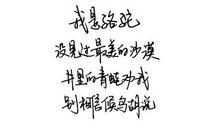 我是骆驼
没见过最美的沙漠
井里的青蛙对我
别相信候鸟胡说